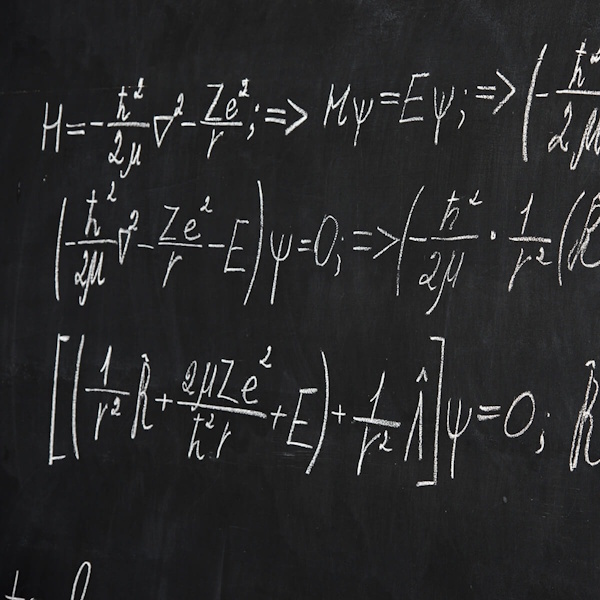 H=-ℏ²/2μ ∇²-Ze²/r; => Hψ=Eψ; => (-ℏ²/2μ
(-ℏ²/2μ ∇²-Ze²/r-E)ψ=0; => (-ℏ²/2μ · 1/r² (R̂
[(1/r² R̂+2μZe²/ℏ²r+E)+1/r² Λ̂]ψ=0; R̂